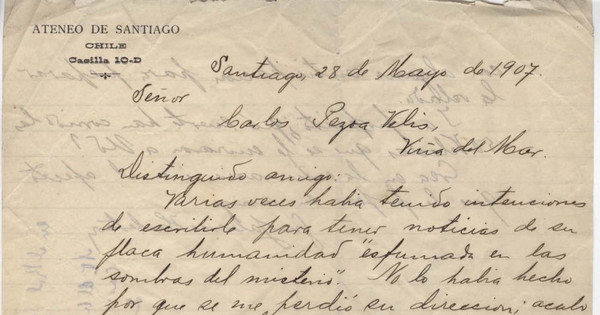 ATENEO DE SANTIAGO
CHILE
Casilla 10-D
Santiago, 28 de Mayo de 1907.
Señor
Carlos Pezoa Velis,
Viña del Mar.
Distinguido amigo:
Varias veces habia tenido intenciones
de escribirle para tener noticias de su
flaca humanidad "esfumada en las
sombras del misterio". No lo habia hecho
por que se me perdió su direccion; acabo